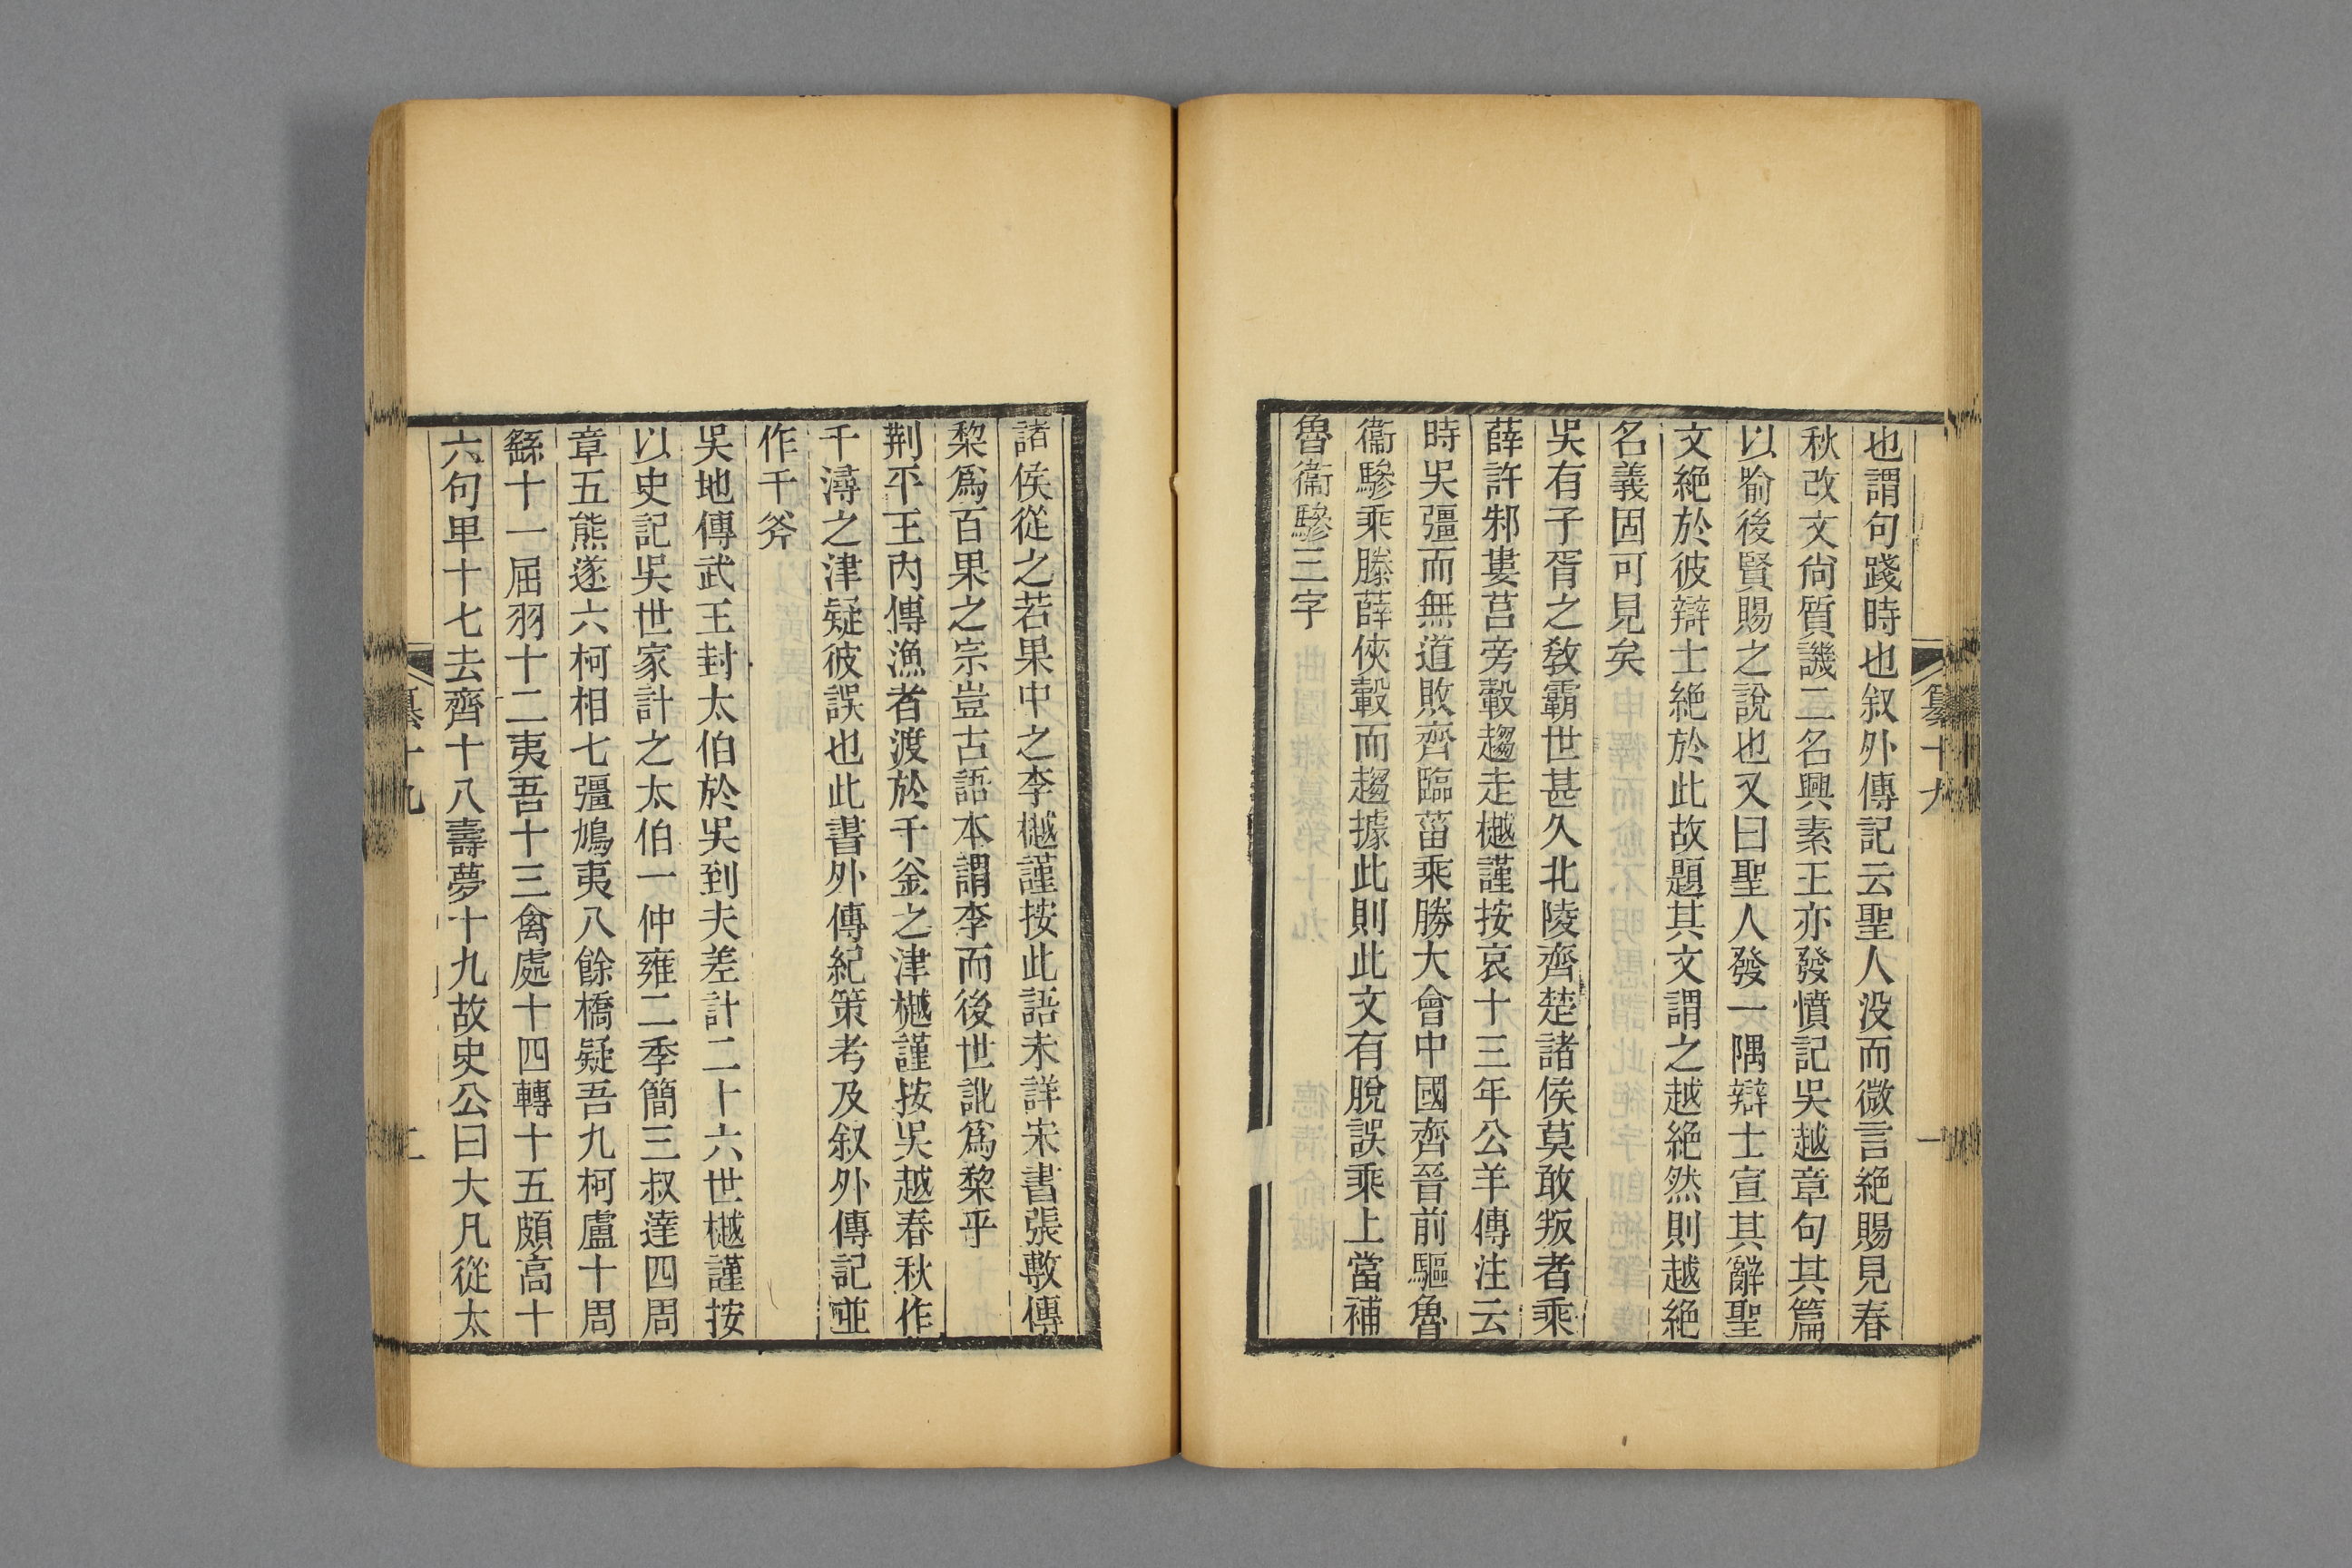 也謂句踐時也叙外傳記云聖人没而微言絶賜見春
秋改文尙質譏二名興素王亦發憤記吳越章句其篇
以喻後賢賜之說也又曰聖人發一隅辯士宣其辭聖
文絶於彼辯士絶於此故題其文謂之越絶然則越絶
名義固可見矣
吳有子胥之敎霸世甚久北陵齊楚諸侯莫敢叛者乘
薛許邾婁莒旁轂趨走樾謹按哀十三年公羊傳注云
時吳彊而無道敗齊臨菑乘勝大會中國齊晉前驅魯
衞驂乘滕薛俠轂而趨據此則此文有脫誤乘上當補
魯衞驂三字
纂十九
一
諸侯從之若果中之李樾謹按此語未詳宋書張敷傳
棃爲百果之宗豈古語本謂李而後世訛爲棃乎
荆平王內傳漁者渡於千釜之津樾謹按吳越春秋作
千潯之津疑彼誤也此書外傳紀策考及叙外傳記竝
作千斧
吳地傳武王封太伯於吳到夫差計二十六世樾謹按
以史記吳世家計之太伯一仲雍二季簡三叔達四周
章五熊遂六柯相七彊鳩夷八餘橋疑吾九柯盧十周
繇十一屈羽十二夷吾十三禽處十四轉十五頗高十
六句卑十七去齊十八壽夢十九故史公曰大凡從太
纂十九
二